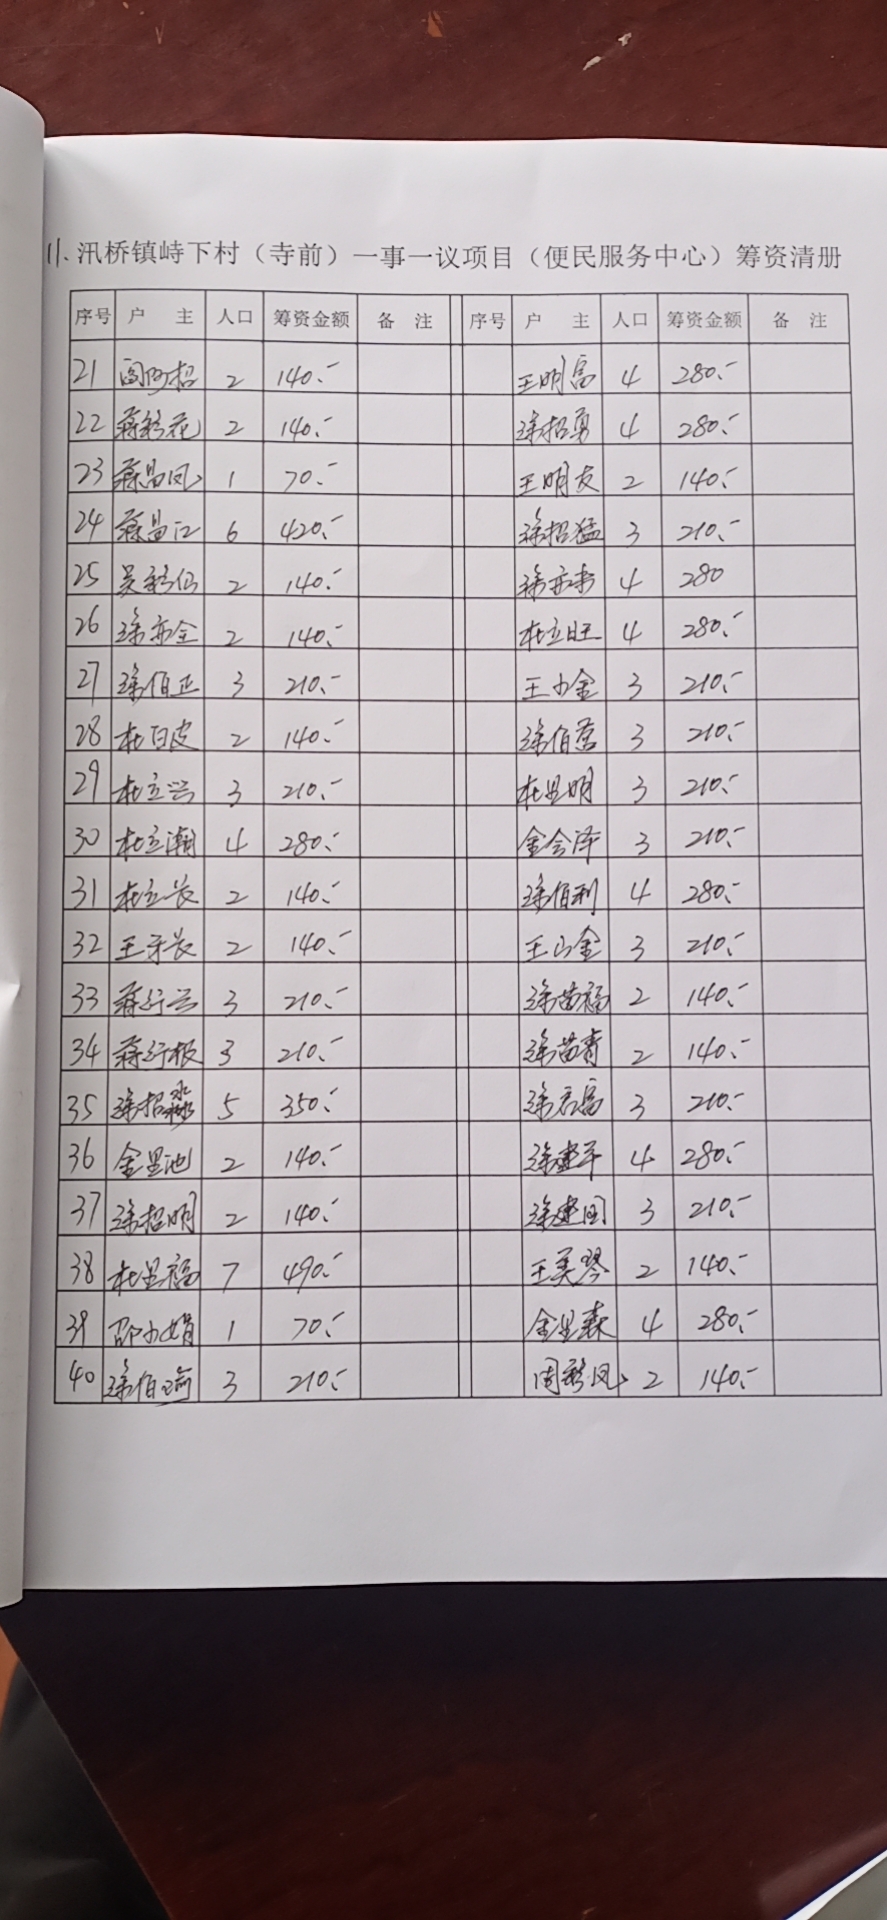 11.汛桥镇峙下村（寺前）一事一议项目（便民服务中心）筹资清册
序号 户 主 人口 筹资金额 备 注 序号 户 主 人口 筹资金额 备 注
21 阎阿招 2 140.- 王明富 4 280.-
22 蒋彩花 2 140.- 涂招勇 4 280.-
23 蒋昌凤 1 70.- 王明友 2 140.-
24 蒋昌江 6 420.- 涂招猛 3 210.-
25 吴彩仙 2 140.- 4 280
26 涂亦全 2 140.- 杜立旺 4 280.-
27 涂伯正 3 210.- 王小金 3 210.-
28 杜白皮 2 140.- 3 210.-
29 杜立兴 3 210.- 杜呈明 3 210.-
30 杜立潮 4 280.- 金会泽 3 210.-
31 杜立长 2 140.- 涂伯利 4 280.-
32 2 140.- 王山金 3 210.-
33 蒋行兴 3 210.- 涂苗福 2 140.-
34 蒋行根 3 210.- 涂苗青 2 140.-
35 涂招淼 5 350.- 涂君富 3 210.-
36 金里池 2 140.- 涂建平 4 280.-
37 涂招明 2 140.- 涂建国 3 210.-
38 杜呈福 7 490.- 王美琴 2 140.-
39 邵小娟 1 70.- 金呈森 4 280.-
40 涂伯瑜 3 210.- 周彩凤 2 140.-